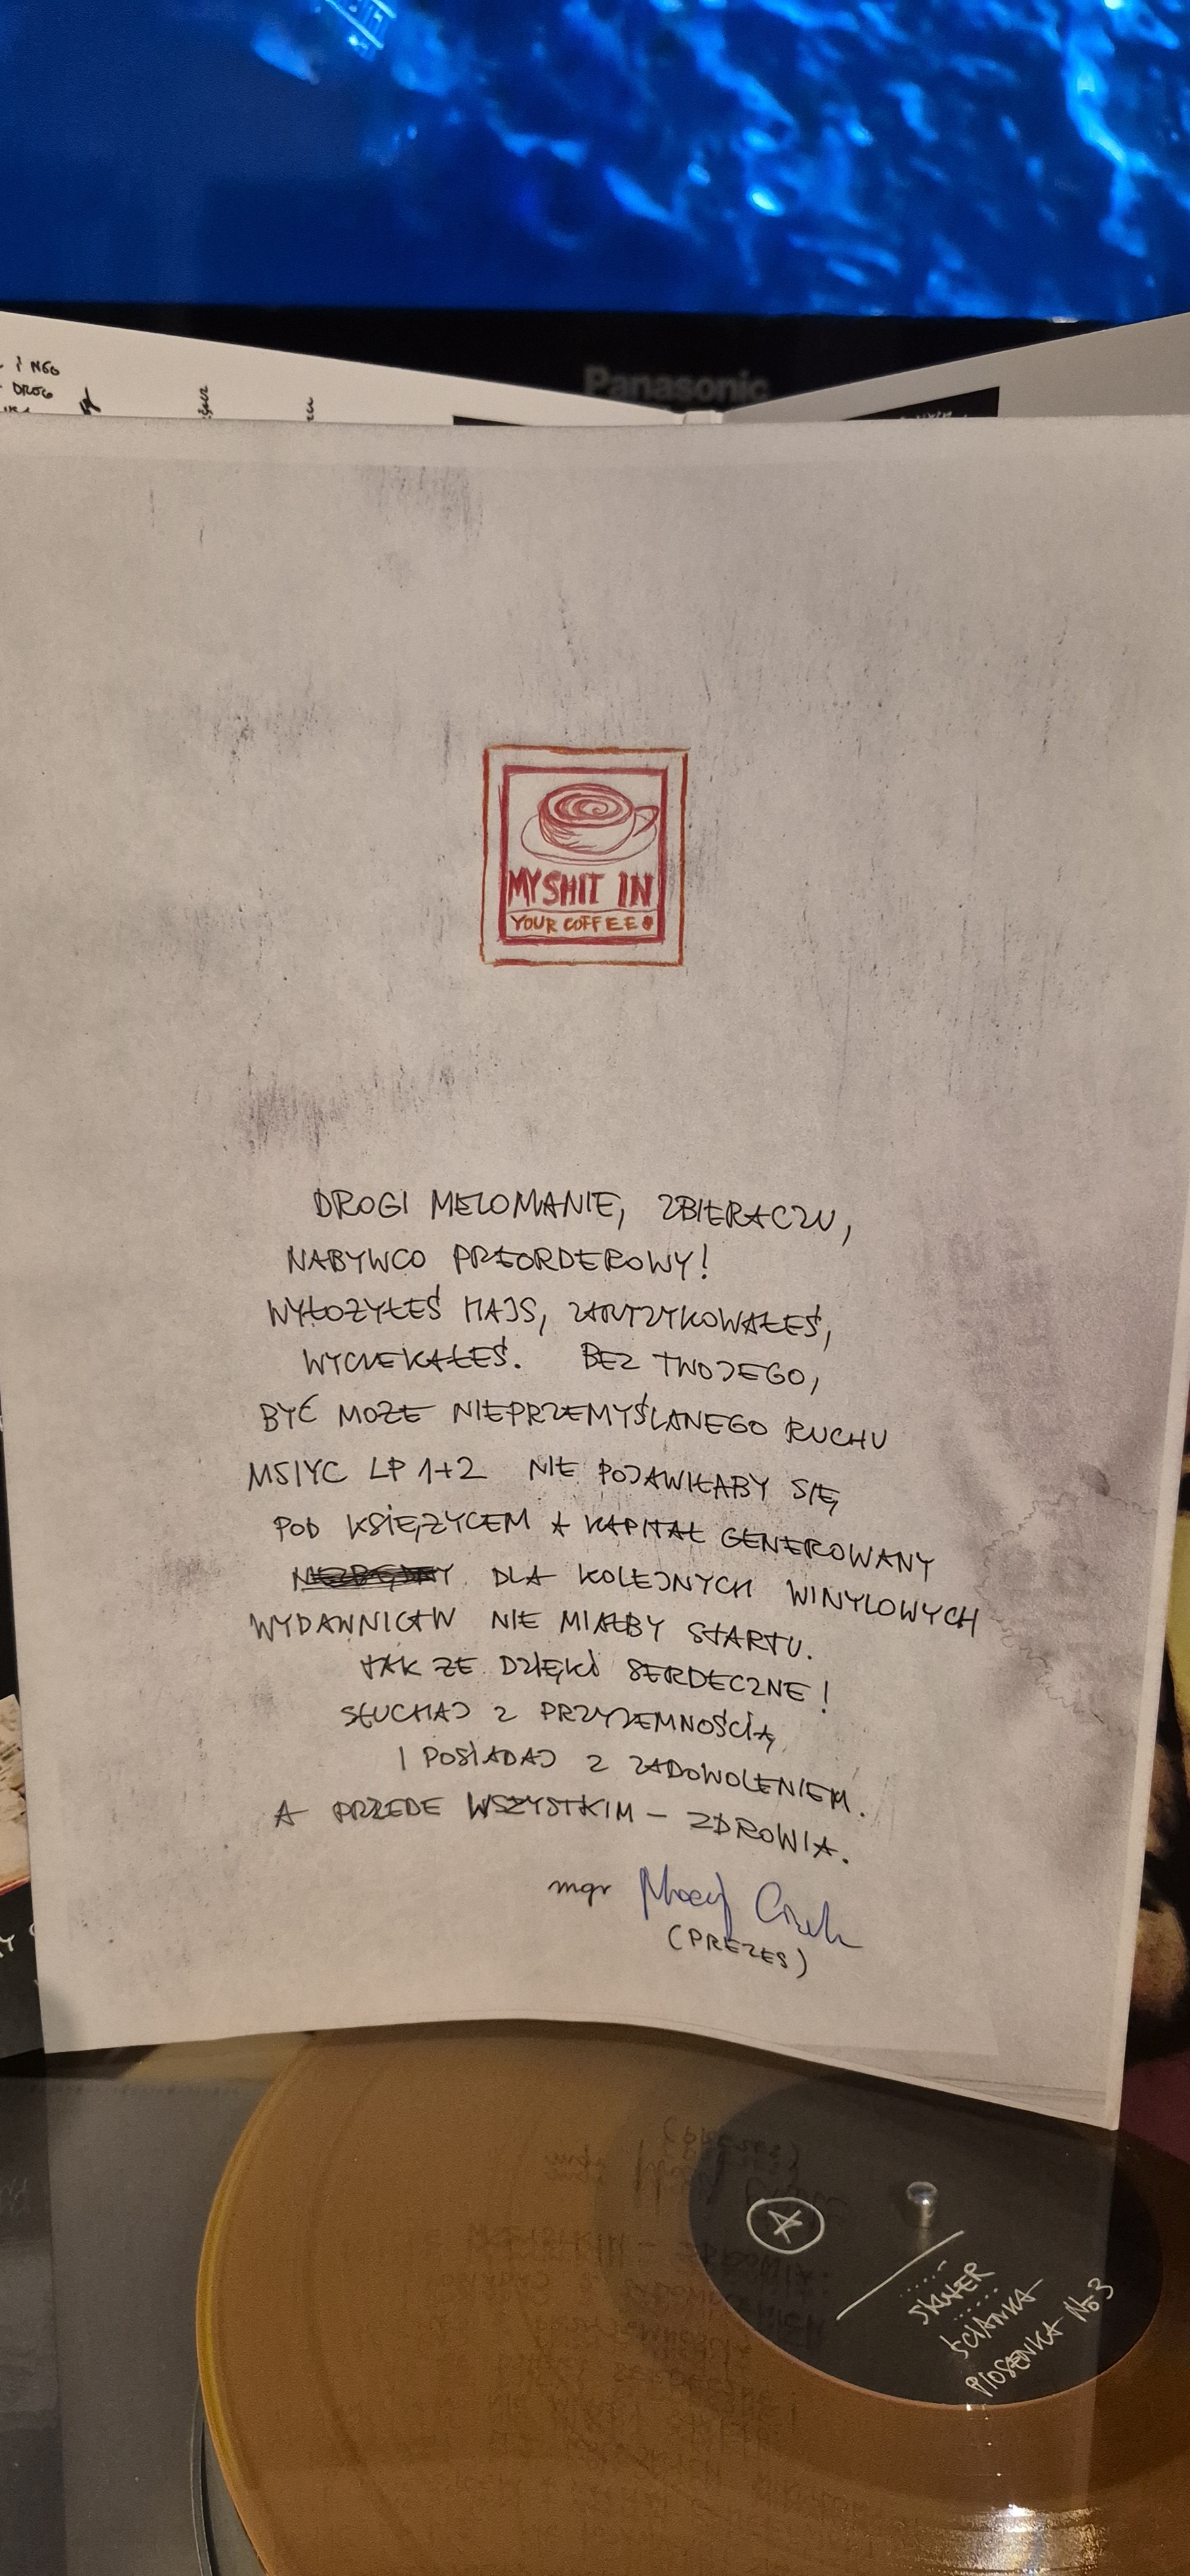 i NGO
DROG
Panasonic
MY SHIT IN
YOUR COFFEE
DROGI MELOMANIE, ZBIERACZU,
NABYWCO PREORDEROWY!
WYŁOŻYŁEŚ HAJS, ZARYZYKOWAŁEŚ,
WYCZEKAŁEŚ. BEZ TWOJEGO,
BYĆ MOŻE NIEPRZEMYŚLANEGO RUCHU
MSIYC LP 1+2 NIE POJAWIŁABY SIĘ
POD KSIĘŻYCEM A KAPITAŁ GENEROWANY
DLA KOLEJNYCH WINYLOWYCH
WYDAWNICTW NIE MIAŁBY STARTU.
TAK ŻE DZIĘKI SERDECZNE!
SŁUCHAJ Z PRZYJEMNOŚCIĄ
I POSIADAJ Z ZADOWOLENIEM.
A PRZEDE WSZYSTKIM - ZDROWIA.
mgr Maciej Cieślak
(PREZES)
A
SKWER
ŚCIANKA
PIOSENKA No3